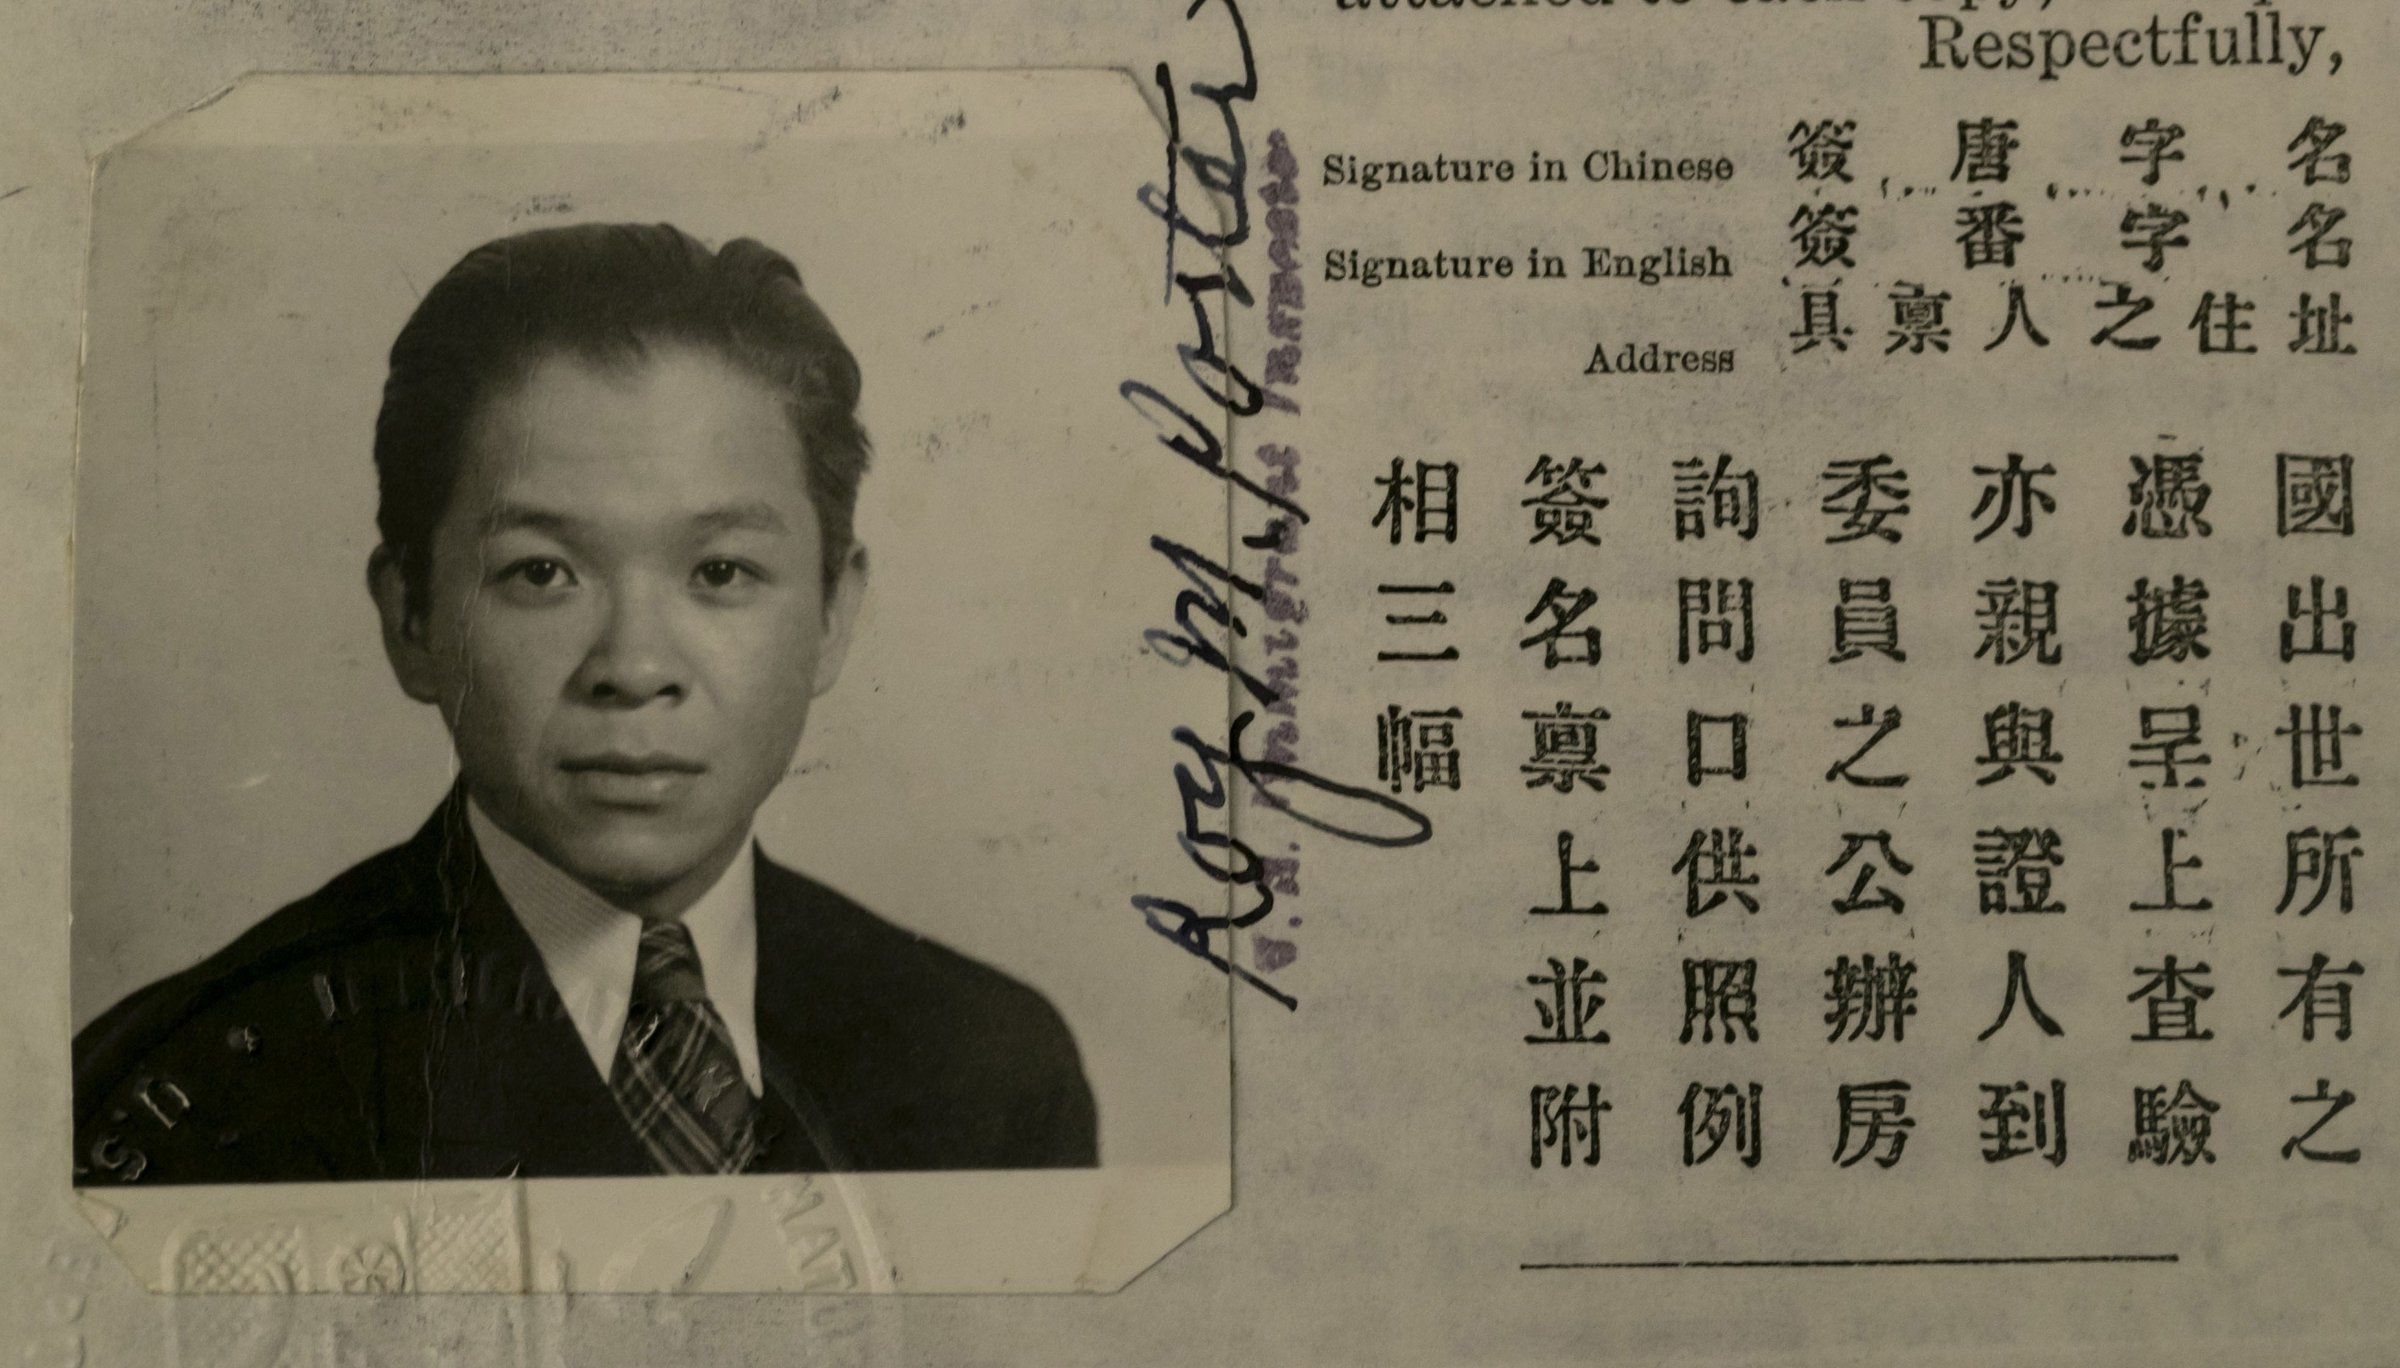 attached to each copy,
Respectfully,
Signature in Chinese 簽唐字名
Signature in English 簽番字名
Address 具禀人之住址
國出世所有之
憑據呈上查驗
亦親與證人到
委員之公辦房
詢問口供照例
簽名禀上並附
相三幅
Roy M. Porter